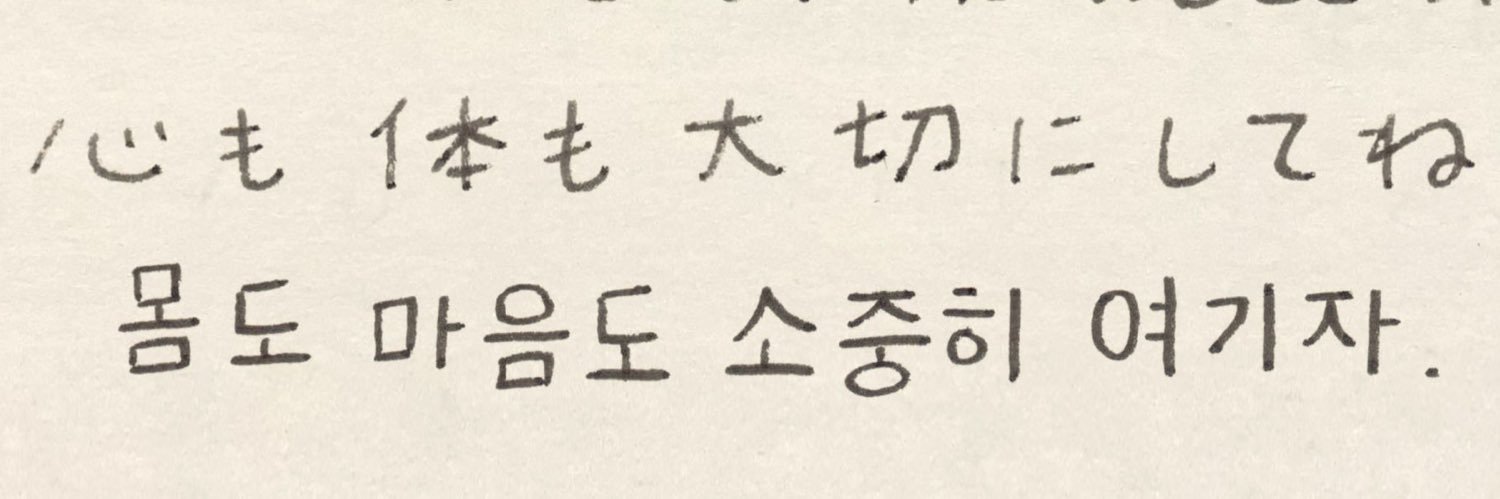 心も 体も 大切にしてね
몸도 마음도 소중히 여기자.